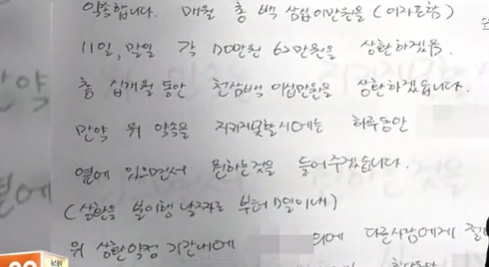 약속합니다. 매월 총 백 삼십이만원을 (이자포함)
11일, 말일 각 70만원 62만원을 상환하겠음.
총 십개월 동안 천삼백 이십만원을 상환하겠습니다.
만약 위 약속을 지키지못할시에는 하루동안
옆에 있으면서 원하는것을 들어주겠습니다.
(상환을 불이행 날짜로 부터 7일이내)
위 상환약정 기간내에 외에 다른사람에게